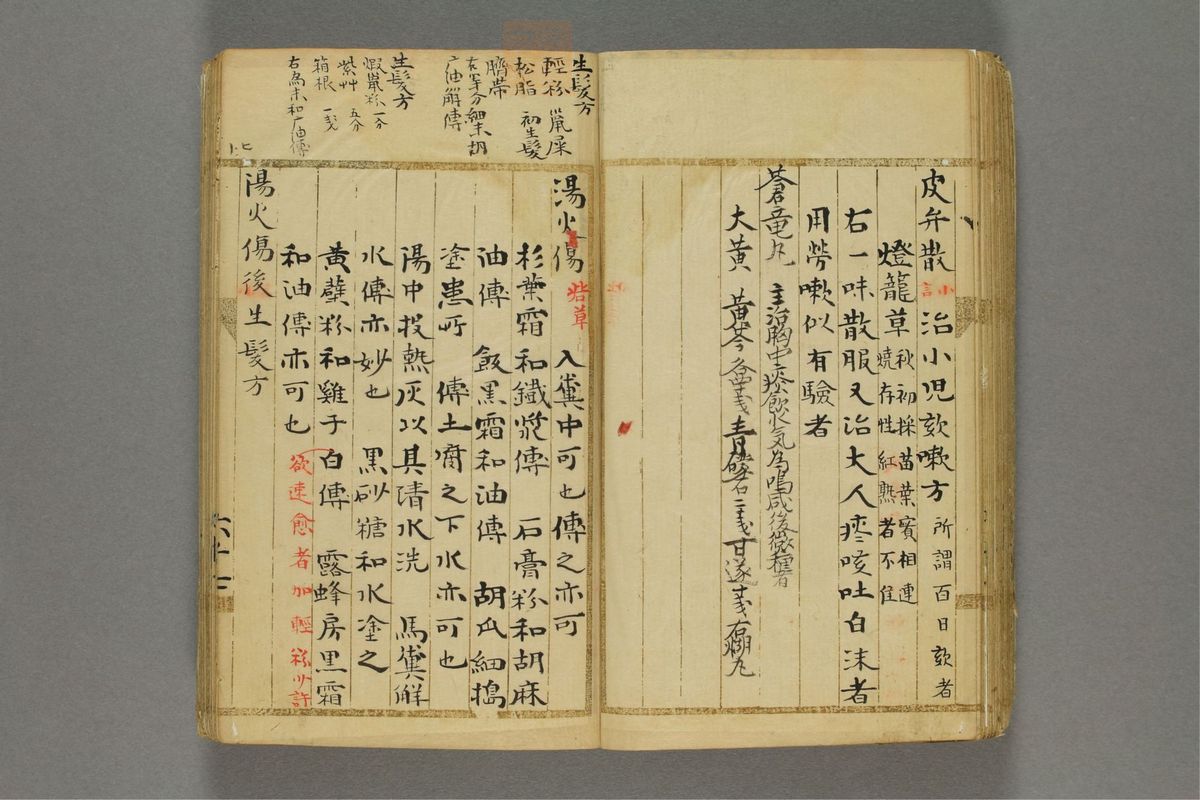 皮弁散 治小児欬嗽方 所謂百日欬者
燈籠草 秋初採苗葉實相連
焼存性 紅熟者不佳
右一味散服又治大人痰咳吐白沫者
用勞嗽似有驗者
蒼竜丸 主治胸中痰飲火気為鳴咸後微種者
大黄 黄芩各四戔青礞石二戔甘遂戔右糊丸
生髪方
輕粉 鼠屎
松脂 初生髪
臍帯
右等分細末胡
广油解傅
生髪方
蝦鼠粉一分
紫艸 五分
箱根 一戔
右為末和广油傅
湯火傷 芒草 入糞中可也傅之亦可
杉葉霜和鐵漿傅 石膏粉和胡麻
油傅 飯黑霜和油傅 胡瓜細搗
塗患所 傅土 之下水亦可也
陽中投熱灰以其清水洗 馬糞解
水傅亦妙也 黑砂糖和水塗之
黄蘗粉和雞子白傅 露蜂房黒霜
和油傅亦可也 欲速愈者加輕粉少許
湯火傷後生髪方
六十七